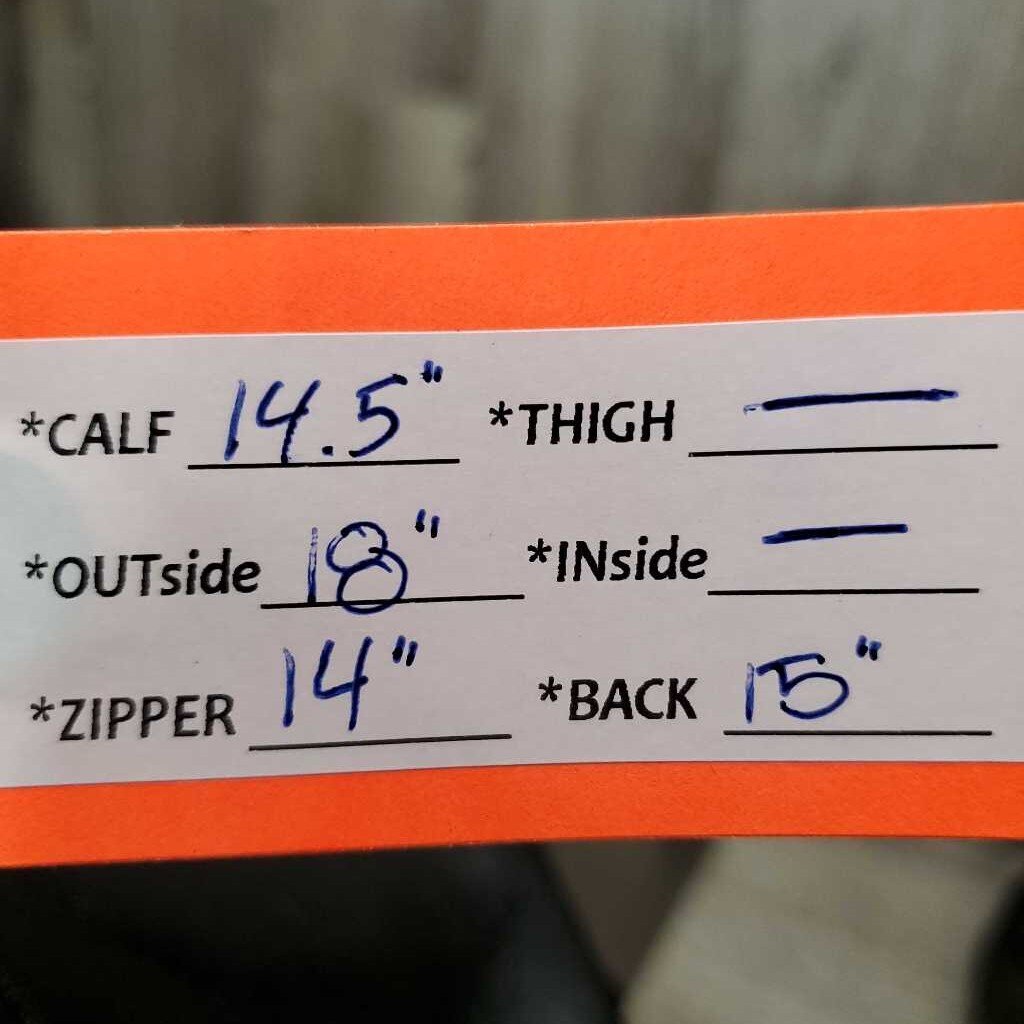 *CALF 14.5" *THIGH —
*OUTside 18" *INside —
*ZIPPER 14" *BACK 15"